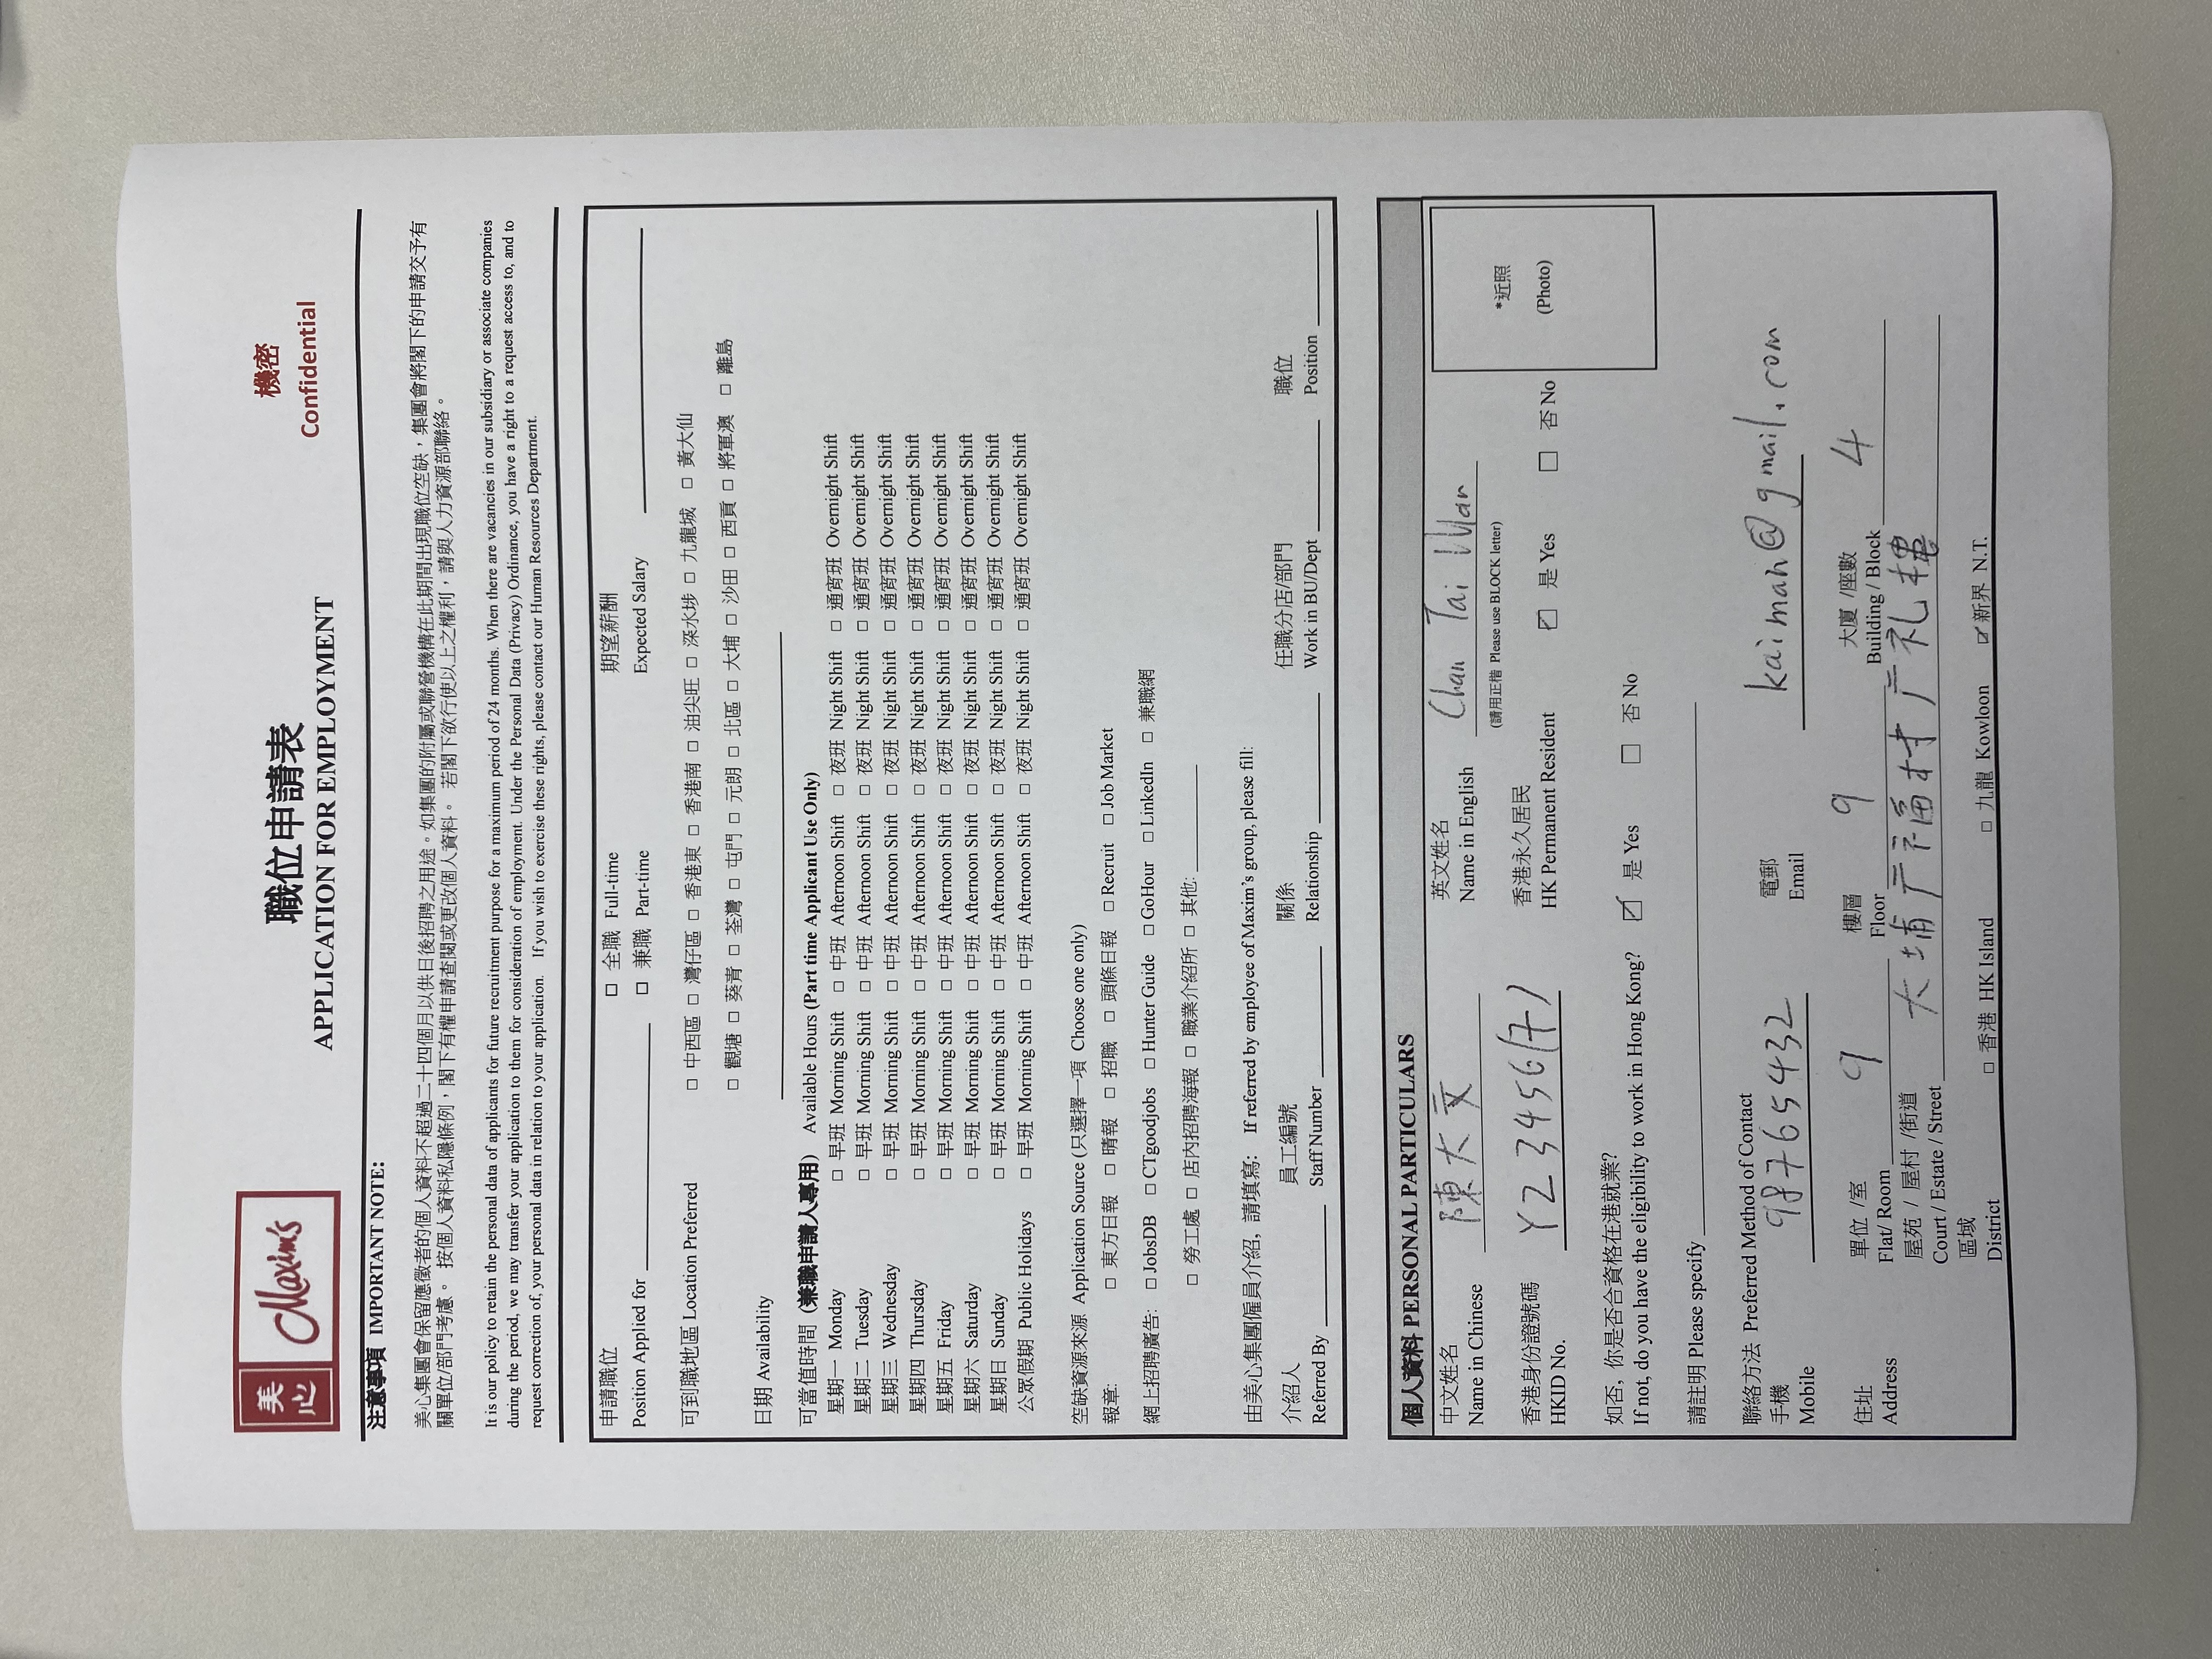 美心 Maxim's
職位申請表
APPLICATION FOR EMPLOYMENT
機密
Confidential
注意事項 IMPORTANT NOTE:
美心集團會保留應徵者的個人資料不超過二十四個月以供日後招聘之用途。如集團的附屬或聯營機構在此期間出現職位空缺，集團會將閣下的申請交予有
關單位/部門考慮。 按個人資料私隱條例，閣下有權申請查閱或更改個人資料。 若閣下欲行使以上之權利，請與人力資源部聯絡。
It is our policy to retain the personal data of applicants for future recruitment purpose for a maximum period of 24 months. When there are vacancies in our subsidiary or associate companies
during the period, we may transfer your application to them for consideration of employment. Under the Personal Data (Privacy) Ordinance, you have a right to a request access to, and to
request correction of, your personal data in relation to your application. If you wish to exercise these rights, please contact our Human Resources Department.
申請職位 □ 全職 Full-time 期望薪酬
Position Applied for □ 兼職 Part-time Expected Salary
可到職地區 Location Preferred □ 中西區 □ 灣仔區 □ 香港東 □ 香港南 □ 油尖旺 □ 深水埗 □ 九龍城 □ 黃大仙
□ 觀塘 □ 葵青 □ 荃灣 □ 屯門 □ 元朗 □ 北區 □ 大埔 □ 沙田 □ 西貢 □ 將軍澳 □ 離島
日期 Availability
可當值時間 (兼職申請人專用) Available Hours (Part time Applicant Use Only)
星期一 Monday □ 早班 Morning Shift □ 中班 Afternoon Shift □ 夜班 Night Shift □ 通宵班 Overnight Shift
星期二 Tuesday □ 早班 Morning Shift □ 中班 Afternoon Shift □ 夜班 Night Shift □ 通宵班 Overnight Shift
星期三 Wednesday □ 早班 Morning Shift □ 中班 Afternoon Shift □ 夜班 Night Shift □ 通宵班 Overnight Shift
星期四 Thursday □ 早班 Morning Shift □ 中班 Afternoon Shift □ 夜班 Night Shift □ 通宵班 Overnight Shift
星期五 Friday □ 早班 Morning Shift □ 中班 Afternoon Shift □ 夜班 Night Shift □ 通宵班 Overnight Shift
星期六 Saturday □ 早班 Morning Shift □ 中班 Afternoon Shift □ 夜班 Night Shift □ 通宵班 Overnight Shift
星期日 Sunday □ 早班 Morning Shift □ 中班 Afternoon Shift □ 夜班 Night Shift □ 通宵班 Overnight Shift
公眾假期 Public Holidays □ 早班 Morning Shift □ 中班 Afternoon Shift □ 夜班 Night Shift □ 通宵班 Overnight Shift
空缺資源來源 Application Source (只選擇一項 Choose one only)
報章: □ 東方日報 □ 晴報 □ 招職 □ 頭條日報 □ Recruit □ Job Market
網上招聘廣告: □ JobsDB □ CTgoodjobs □ Hunter Guide □ GoHour □ LinkedIn □ 兼職網
□ 勞工處 □ 店內招聘海報 □ 職業介紹所 □ 其他:
由美心集團僱員介紹, 請填寫: If referred by employee of Maxim's group, please fill:
介紹人 員工編號 關係 任職分店/部門 職位
Referred By Staff Number Relationship Work in BU/Dept Position
個人資料 PERSONAL PARTICULARS
中文姓名 陳大文 英文姓名 Chan Tai Man
Name in Chinese Name in English
(請用正楷 Please use BLOCK letter)
*近照
(Photo)
香港身份證號碼 Y23456(7) 香港永久居民
HKID No. HK Permanent Resident ☑ 是 Yes □ 否 No
如否, 你是否合資格在港就業?
If not, do you have the eligibility to work in Hong Kong? ☑ 是 Yes □ 否 No
請註明 Please specify
聯絡方法 Preferred Method of Contact
手機 98765432 電郵 kaiman@gmail.com
Mobile Email
住址 單位 /室 9 樓層 9 大廈 /座數 4
Address Flat/ Room Floor Building / Block
屋苑 / 屋村 /街道 大埔广福村广礼樓
Court / Estate / Street
區域
District □ 香港 HK Island □ 九龍 Kowloon ☑ 新界 N.T.